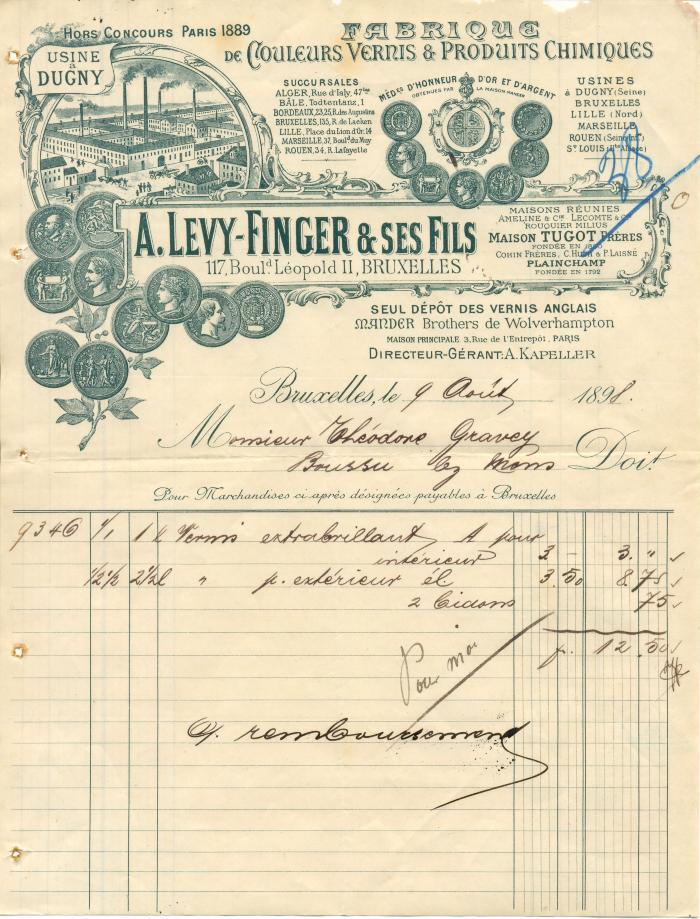 HORS CONCOURS PARIS 1889
USINE
à
DUGNY
FABRIQUE
DE COULEURS VERNIS & PRODUITS CHIMIQUES
SUCCURSALES
ALGER, Rue d'Isly, 47ter
BÂLE, Todtentanz, 1
BORDEAUX, 23,25, R. des Augustins
BRUXELLES, 135, R. de Laeken
LILLE, Place du Lion d'Or, 14
MARSEILLE, 37, Boulrd du Muy
ROUEN, 34, R. Lafayette
MÉDES D'HONNEUR D'OR ET D'ARGENT
OBTENUES PAR LA MAISON MANDER
USINES
à DUGNY (Seine)
BRUXELLES
LILLE (Nord)
MARSEILLE
ROUEN
ST LOUIS
A. LEVY-FINGER & SES FILS
117, Bould Léopold II, BRUXELLES
MAISONS RÉUNIES
AMELINE & CIE LECOMTE & CIE
ROUQUIER MILIUS
MAISON TUGOT FRÈRES
FONDÉE EN
COHIN FRÈRES, C. HUBIN & P. LAISNÉ
PLAINCHAMP
FONDÉE EN 1792
SEUL DÉPÔT DES VERNIS ANGLAIS
MANDER Brothers de Wolverhampton
MAISON PRINCIPALE 3, Rue de l'Entrepôt, PARIS
DIRECTEUR-GÉRANT: A. KAPELLER
Bruxelles, le 9 Août 1898.
Monsieur Théodore Gravey
Boussu lez Mons Doit
Pour Marchandises ci après désignées payables à Bruxelles
9346 1/1 1 l Vernis extrabrillant A pour
intérieur 3. - 3. "
1/2 1/2 2 1/2 l " p. extérieur él. 3.50 8.75
2 Bidons 75
f. 12.50
Pour moi
C/. remboursement